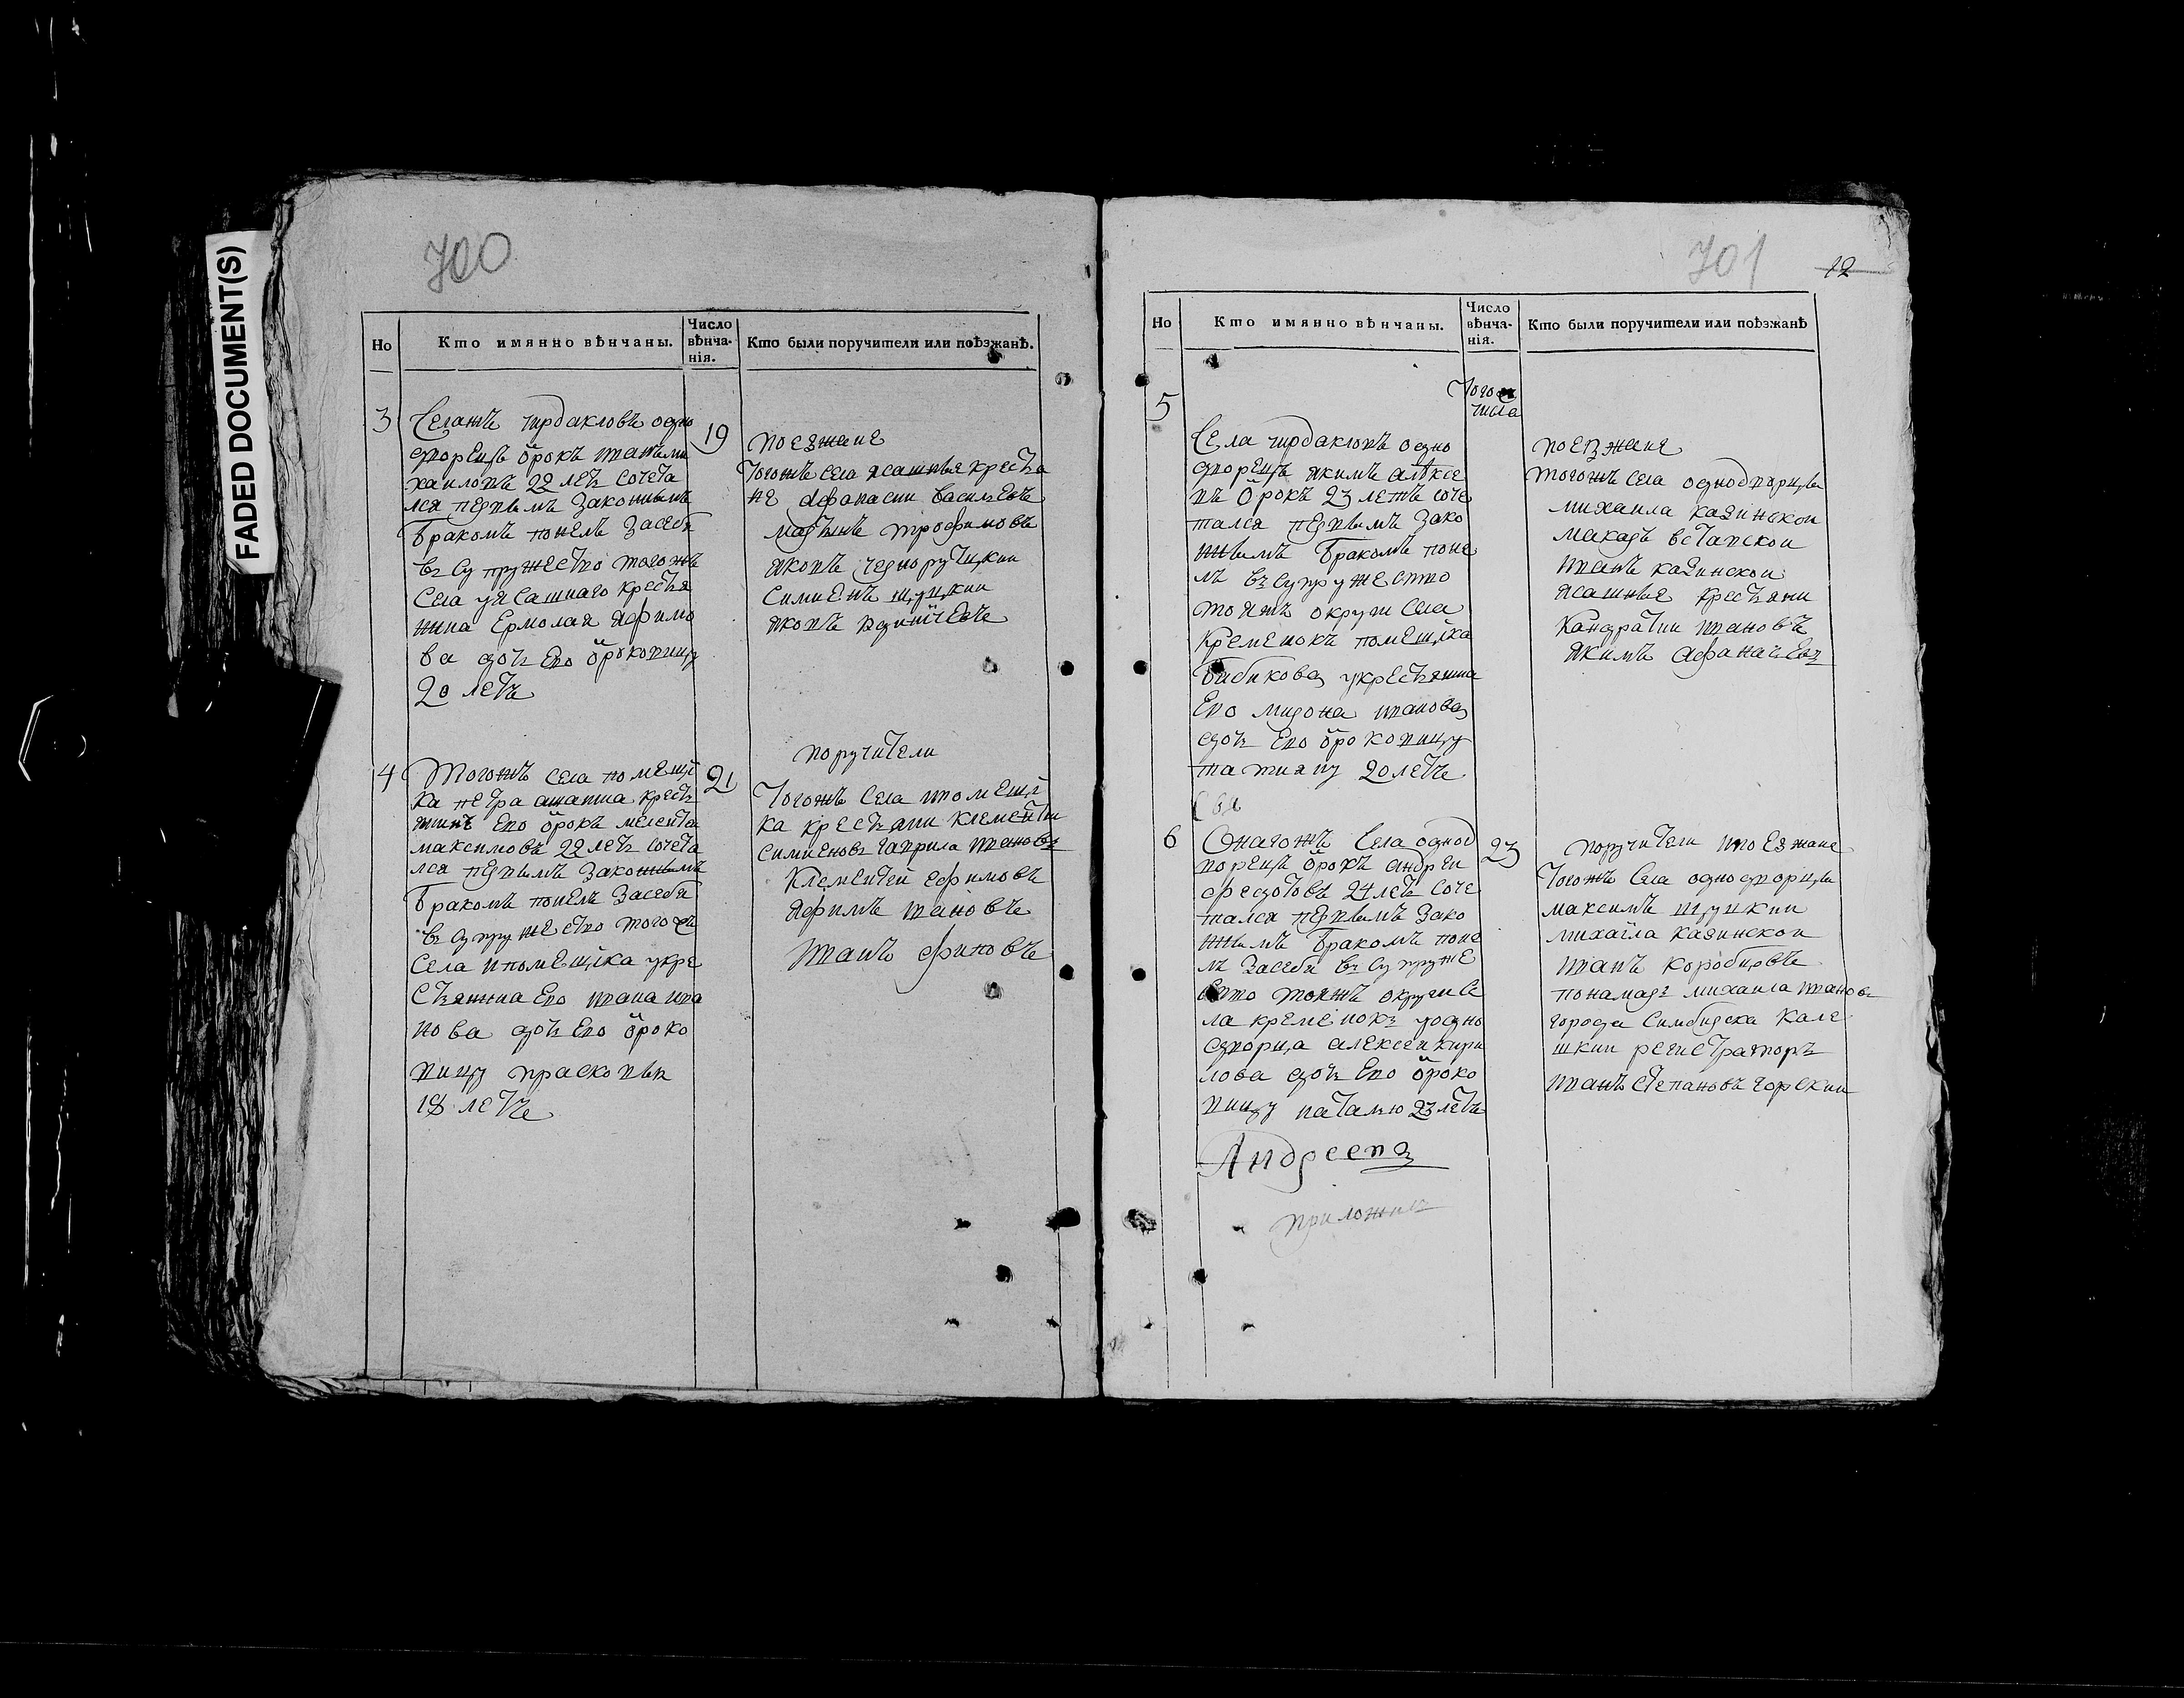 FADED DOCUMENT(S)
700
Но
Кто имянно вѣнчаны.
Число вѣнча-нія.
Кто были поручители или поѣзжанѣ.
3
Селажъ чирдакловъ одно
дворецъ отрокъ иванъ ми
хаиловъ 22 летъ сочета
лся первымъ законнымъ
бракомъ понелъ засебя
въ супружество тогожъ
села у ясашнаго крестья
нина Ермолая яфимо
ва дочь Ево отроковицу
20 летъ
19
поезжане
тогожъ села ясашныя кресть
не Афанасии васильевъ
трофимовъ
яковъ
симионъ
яковъ
4
Тогожъ села помещи
ка петра крестья
нинъ Ево отрокъ мелентеи
максимовъ 22 летъ сочета
лся первымъ законнымъ
бракомъ понелъ засебя
въ супружество тогожъ
села ипомещика укре
стьянина Ево ивана ива
нова дочь Ево отроко
вицу прасковью
18 летъ
21
поручители
тогожъ села ипомещи
ка крестьяни клементеи
симионовъ гаврила ивановъ
Клементеи ефимовъ
яфимъ ивановъ
иванъ
701
12
Но
Кто имянно вѣнчаны.
Число вѣнча-нія.
Кто были поручители или поѣзжанѣ
5
Тогож
числа
Села чирдакловъ одно
дворецъ якимъ алѣксе
въ отрокъ 23 летъ соче
тался первымъ зако
ннымъ бракомъ поне
лъ въ супружество
тояжъ округи села
Кременокъ помещика
бибикова укрестьянина
Ево мирона иванова
дочь Ево отроковицу
татияну 20 летъ
поезжане
тогожъ села однодворцы
михаила казинской
макаръ
иванъ казинской
ясашныя крестьяни
Кандратии ивановъ
якимъ афанасьевъ
6
Онагожъ села однод
ворецъ отрокъ андреи
федотовъ 24 летъ соче
тался первымъ зако
ннымъ бракомъ поне
лъ засебя въ супруже
ство тояжъ округи се
ла кременокъ уодно
дворца алексеи кири
лова дочь Ево отроко
вицу наталью 23 летъ
23
поручители ипоезжане
тогожъ села однодворцы
максимъ
михаила казинской
иванъ коробцовъ
понамарь михаила ивановъ
города Симбирска Коле
шкии регистраторъ
иванъ степановъ горскии
Андреевъ
приложилъ